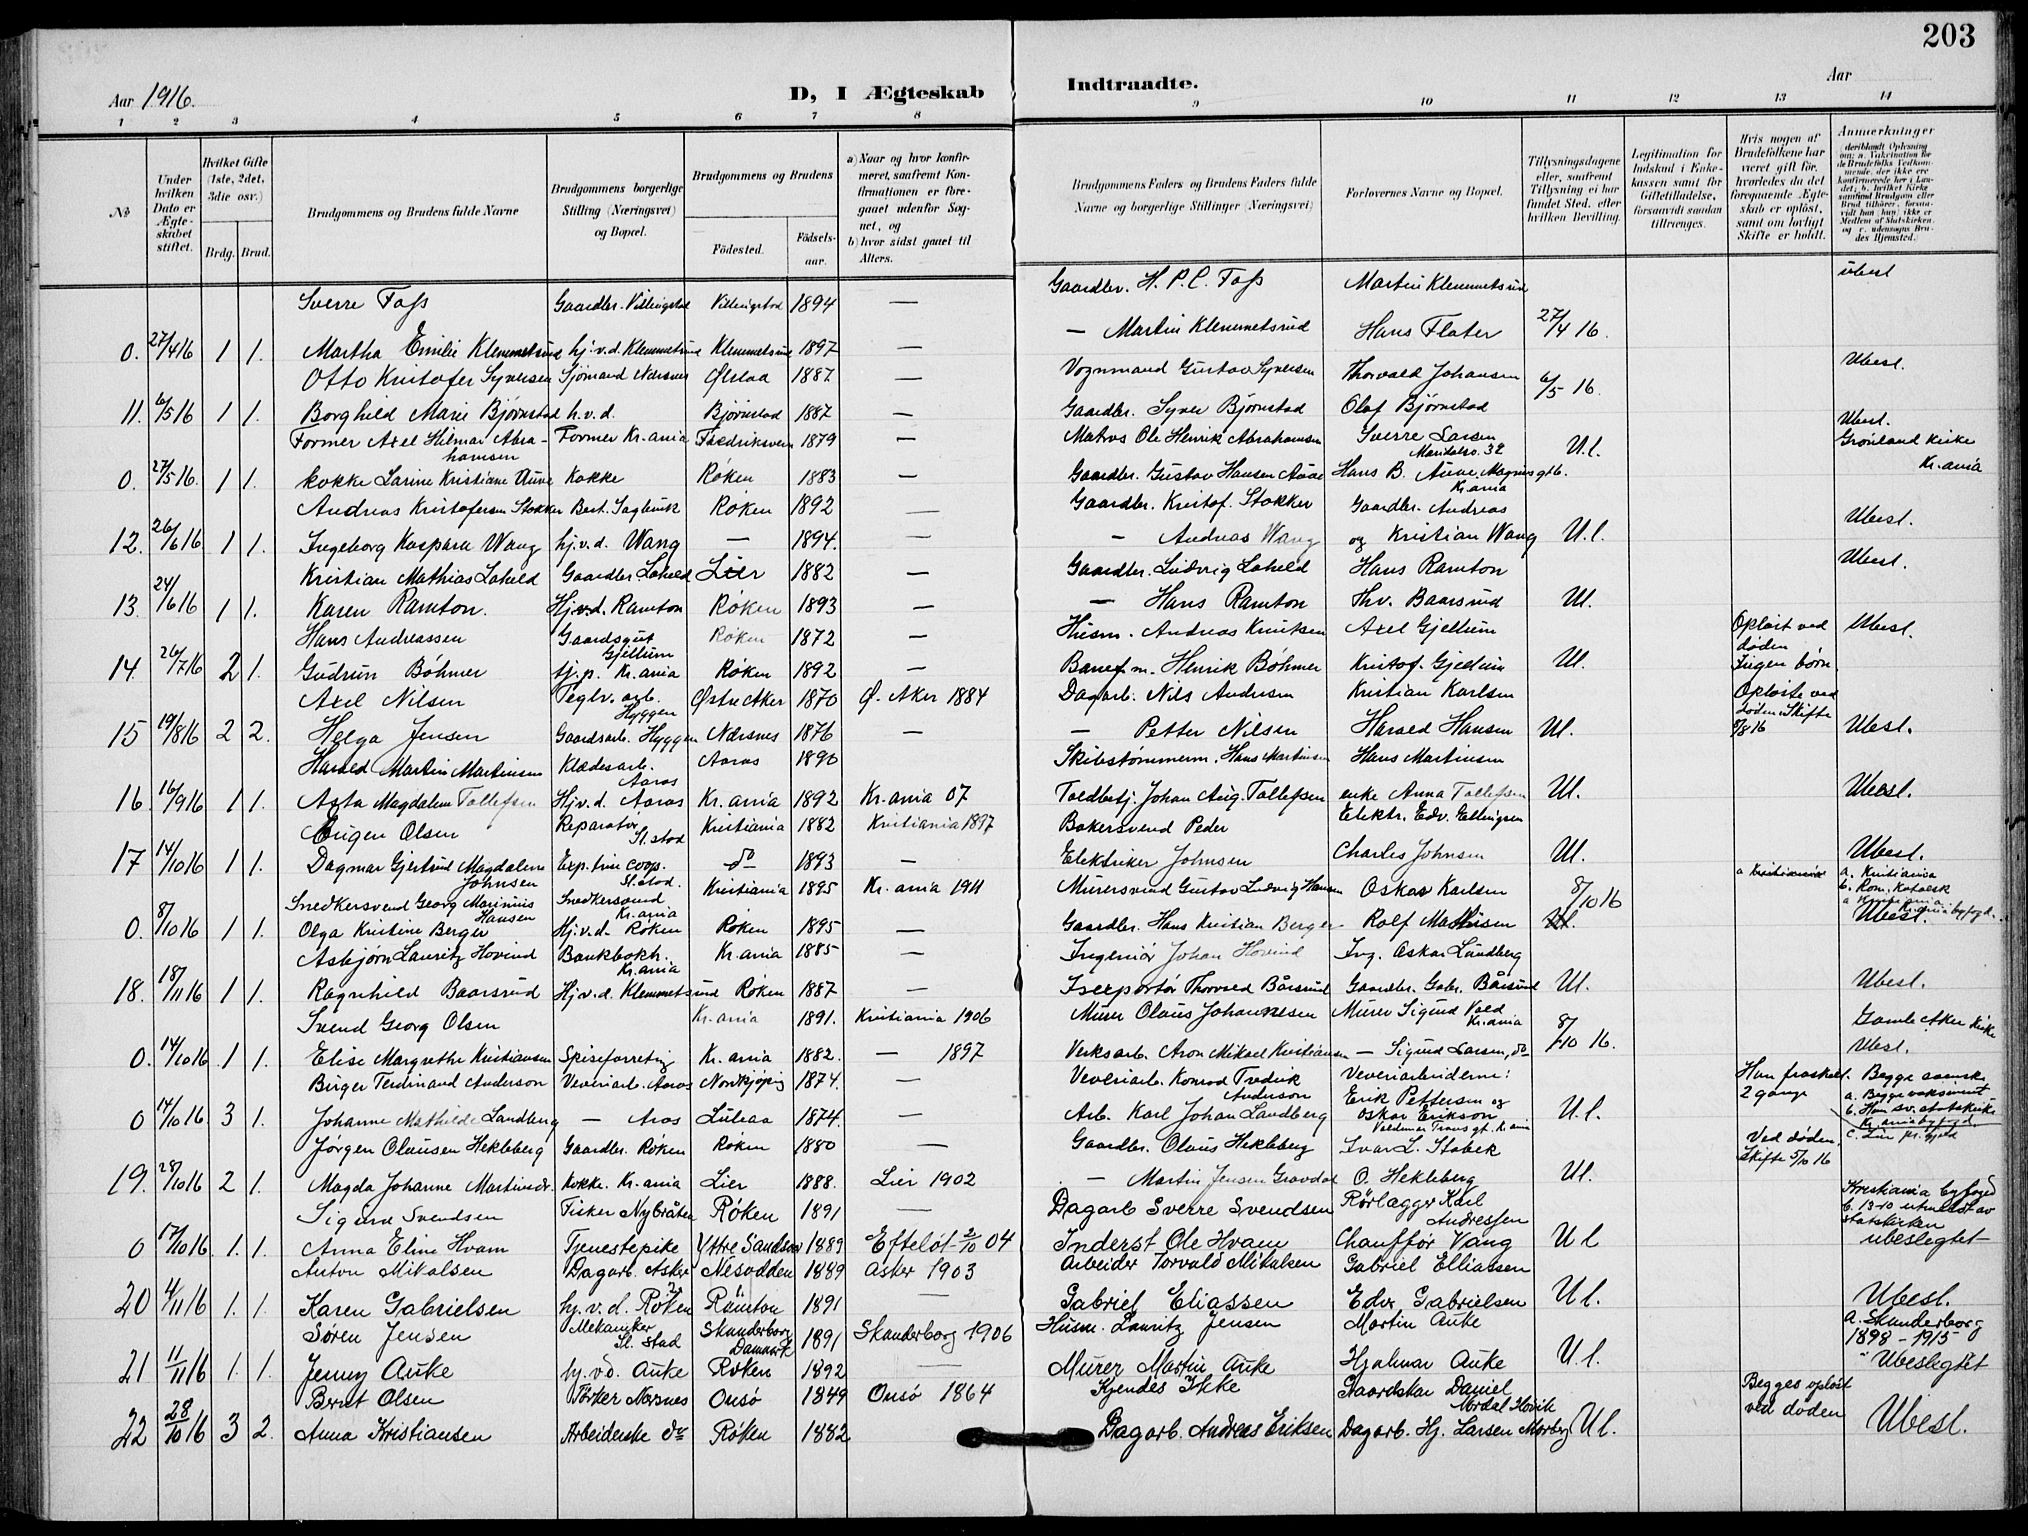 203
Aar 1916.
D, I Ægteskab Indtraadte.
Aar
1 2 3 4 5 6 7 8 9 10 11 12 13 14
No
Under hvilken Dato er Ægteskabet stiftet.
Hvilket Gifte (1ste, 2det, 3die osv.)
Brdg. Brud.
Brudgommens og Brudens fulde Navne
Brudgommens borgerlige Stilling (Næringsvei) og Bopæl.
Brudgommens og Brudens
Fødested.
Fødselsaar.
a) Naar og hvor konfirmeret, saafremt Konfirmationen er foregaaet udenfor Sognet, og
b) hvor sidst gaaet til Alters.
Brudgommens Faders og Brudens Faders fulde Navne og borgerlige Stillinger (Næringsvei)
Forlovernes Navne og Bopæl.
Tillysningsdagene eller, saafremt Tillysning ei har fundet Sted, efter hvilken Bevilling.
Legitimation for Indskud i Enkekassen samt for Giftetilladelse, forsaavidt saadan tiltrænges.
Hvis nogen af Brudefolkene har været gift før, hvorledes da det foregaaende Ægteskab er opløst, samt om lovligt Skifte er holdt.
Anmerkninger (deriblandt Oplysning om: a. Vakcination for de Brudefolks Vedkommende, der ikke ere konfirmerede her i Landet; b. hvilket Kirkesamfund Brudgom eller Brud tilhører, forsaavidt han (hun) ikke er Medlem af Statskirken, og c. udensogns Brudes Hjemsted.)
Sverre Foss Gaardbr. Villingstad Villingstad 1894 — Gaardbr. H. P. C. Foss Martin Klemmetsrud ubesl
0. 27/4 16 1 1. Martha Emilie Klemmetsrud hj.v.d. Klemmetsrud Klemmetsrud 1897 — — Martin Klemmetsrud Hans Flater 27/4 16.
Otto Kristofer Syversen Sjömand Nærsnes Ølstad 1887 — Vognmand Gustav Syversen Thorvald Johansen 6/5 16. Ubesl.
11. 6/5 16 1 1. Borghild Marie Bjørnstad h.v.d. Bjørnstad 1887 — Gaardbr. Syver Bjørnstad Olaf Bjørnstad
Former Axel Hilmar Abrahamsen Former Kr.ania Fredriksvern 1879 — Matros Ole Henrik Abrahamsen Sverre Larsen Maridalsv. 32 U.l. Ubesl. Grønland Kirke Kr.ania
0. 27/5 16. 1 1. kokke Larine Kristiane Auve Kokke Røken 1883 — Gaardbr. Gustav Hansen Auve Hans B. Auve. Magnus gt 6. Kr.ania
Andreas Kristofersen Stokker Best. Sagbruk Røken 1892 — Gaardbr. Kristof. Stokker Gaardbr. Andreas Ubesl.
12. 26/6 16 1 1. Ingeborg Kaspara Wang hj.v.d. Wang — 1894. — Andreas Wang og Kristian Wang U.l.
Kristian Mathias Loheld Gaardbr. Loheld Lier 1882 — Gaardbr. Ludvig Loheld Hans Ramton Ubesl.
13. 24/6 16 1 1. Karen Ramton. Hj.v.d. Ramton Røken 1893 — — Hans Ramton Thv. Baarsrud Ul.
Hans Andreassen Gaardsgut Gjellum Røken 1872 — Husm. Andreas Knutsen Axel Gjellum Opløst ved døden Ingen børn Ubesl.
14. 26/7 16 2 1. Gudrun Böhmer tj.p. Kr.ania Røken 1892 — Banef.m. Henrik Böhmer Kristof. Gjellum Ul.
Axel Nilsen Teglv. arb. Hyggen Østre Aker 1870 Ø. Aker 1884 Dagarb. Nils Andresen Kristian Karlsen Opløste ved døden. Skifte 8/8 16
15 19/8 16 2 2. Helga Jensen Gaardsarb. Hyggen Nærsnes 1876 — — Petter Nilsen Harald Hansen Ul. Ubesl.
Harald Martin Martinsen Klædesarb. Aaros Aaros 1890 Skibstømmerm. Hans Martinsen Hans Martinsen
16. 16/9 16 1 1. Asta Magdalene Tollefsen Hj.v.d. Aaros Kr.ania 1892 Kr.ania 07 Toldbetj. Johan Aug. Tollefsen enke Anna Tollefsen Ul. Ubesl.
Eugen Olsen Reparatör Sl.stad Kristiania 1882 Kristiania 1897 Bakersvend Peder Elektr. Edv. Ellingsen
17 14/10 16 1 1. Dagmar Gjertrud Magdalene Johnsen Exp. trin coop. Sl.stad. do 1893 — Elektriker Johnsen Charles Johnsen Ul. Ubesl.
Snedkersvend Georg Marinius Hansen Snedkersvend Kr.ania Kristiania 1895 Kr.ania 1911 Murersvend Gustav Ludvig Hansen Oskar Karlsen 8/10 16 a. Kristiania b. Rom. katolsk
0. 8/10 16 1 1. Olga Kristine Berger Hj.v.d. Røken Røken 1895 — Gaardbr. Hans Kristian Berger Rolf Mathisen Ul. Kr.ania byfogd. Ubesl.
Asbjørn Lauritz Hovind Bankbokh. Kr.ania Kr.ania 1885 — Ingeniör Johan Hovind Ing. Oskar Lundberg
18. 18/11 16 1 1. Ragnhild Baarsrud Hj.v.d. Klemmetsrud Røken 1887 — Isexportör Thorvald Bårsrud Gaardbr. Gabr. Bårsrud Ul. Ubesl.
Svend Georg Olsen Kr.ania 1891. Kristiania 1906 Murer Olaus Johannesen Murer Sigurd Vold Kr.ania 8/10 16. Gamle Aker Kirke
0. 14/10 16 1 1. Elise Margrethe Kristiansen Spiseforretng Kr.ania 1882. — 1897 Verksarb. Aron Mikael Kristiansen — Sigurd Larsen, do Ubesl.
Birger Ferdinand Anderson Veveriarb. Aaros Nordkjöping 1874. — Veveriarb. Konrad Fredrik Anderson Veveriarbeiderne: Han fraskelt 2 gange Begge svenske
0 14/10 16 3 1. Johanne Mathilde Landberg — Aros Luleaa 1874. — Arb. Karl Johan Landberg Erik Pettersen og Oskar Erikson U.l. a. Begge vaksinert b. Han sv. statskirke Kr.ania byfogd.
Jørgen Olausen Hekleberg Gaardbr. Røken Røken 1880 — Gaardbr. Olaus Hekleberg Ivar L. Stabek Ved døden, Skifte 5/10 16 c. Lier pr.gjeld
19. 28/10 16 2 1. Magda Johanne Martinsdr. Kokke. Kr.ania Lier 1888. Lier 1902 — Martin Jensen Gravdal O. Hekleberg Ul.
Sigurd Svendsen Fisker Nybråten Røken 1891 — Dagarb Sverre Svendsen Rørlægger Karl Andressen Kristiania byfogd b. 13-10 utmeldt av statskirken
0 17/10 16. 1. 1. Anna Eline Hvam Tjenestepike Ytre Sandsvær 1889 Efteløt 2/10 04 Inderst Ole Hvam Chauffør Vang U l ubeslegtet
Anton Mikalsen Dagarb. Asker Nesodden 1889 Asker 1903 Arbeider Torvald Mikalsen Gabriel Elliassen
20 4/11 16 1. 1. Karen Gabrielsen hj.v.d. Røken Ramton 1891 — Gabriel Eliassen Edv. Gabrielsen U l. Ubesl.
Søren Jensen Mekaniker Sl. stad Skanderborg Danmark 1891 Skanderborg 1906 Husm. Lauritz Jensen Martin Auke a. Skanderborg 1898 - 1915
21 11/11 16 1. 1. Jenny Auke hj.v.d. Auke Røken 1892 — Murer Martin Auke Hjalmar Auke U l. Ubeslegtet
Bernt Olsen Tørker Nærsnes Onsø 1849 Onsø 1864 Kjendes Ikke Gaardskar Daniel Begges opløst ved døden
22 28/10 16 3 2. Anna Kristiansen Arbeiderske do Røken 1882 Dagarb. Andreas Eriksen Dagarb. Hj. Larsen Morberg U l. Ubesl.